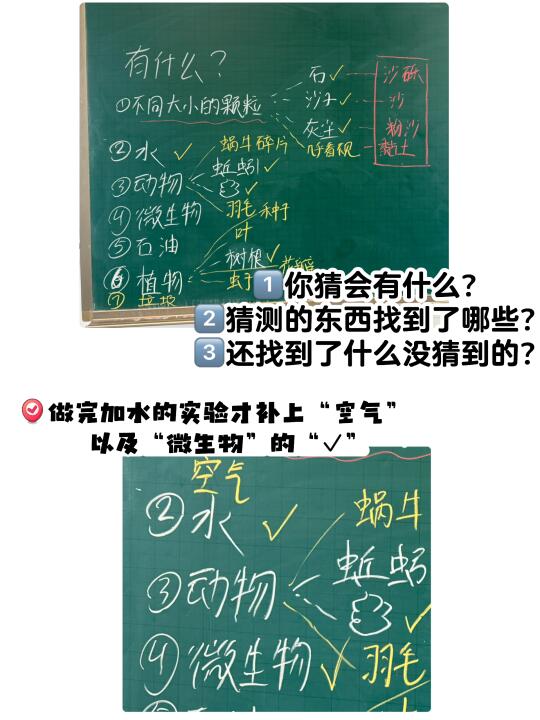 有什么?
①不同大小的颗粒
石✓ 沙砾
沙子✓ 沙
灰尘✓ 粉沙
呼看视 黏土
②水 ✓ 蜗牛碎片
③动物 蚯蚓✓
✓
④微生物 羽毛 种子
⑤石油 叶
⑥植物 树根✓
⑦垃圾
1 你猜会有什么?
2 猜测的东西找到了哪些?
3 还找到了什么没猜到的?
做完加水的实验才补上“空气”
以及“微生物”的“✓”
空气
②水 ✓ 蜗牛
③动物 蚯蚓
✓
④微生物 ✓ 羽毛